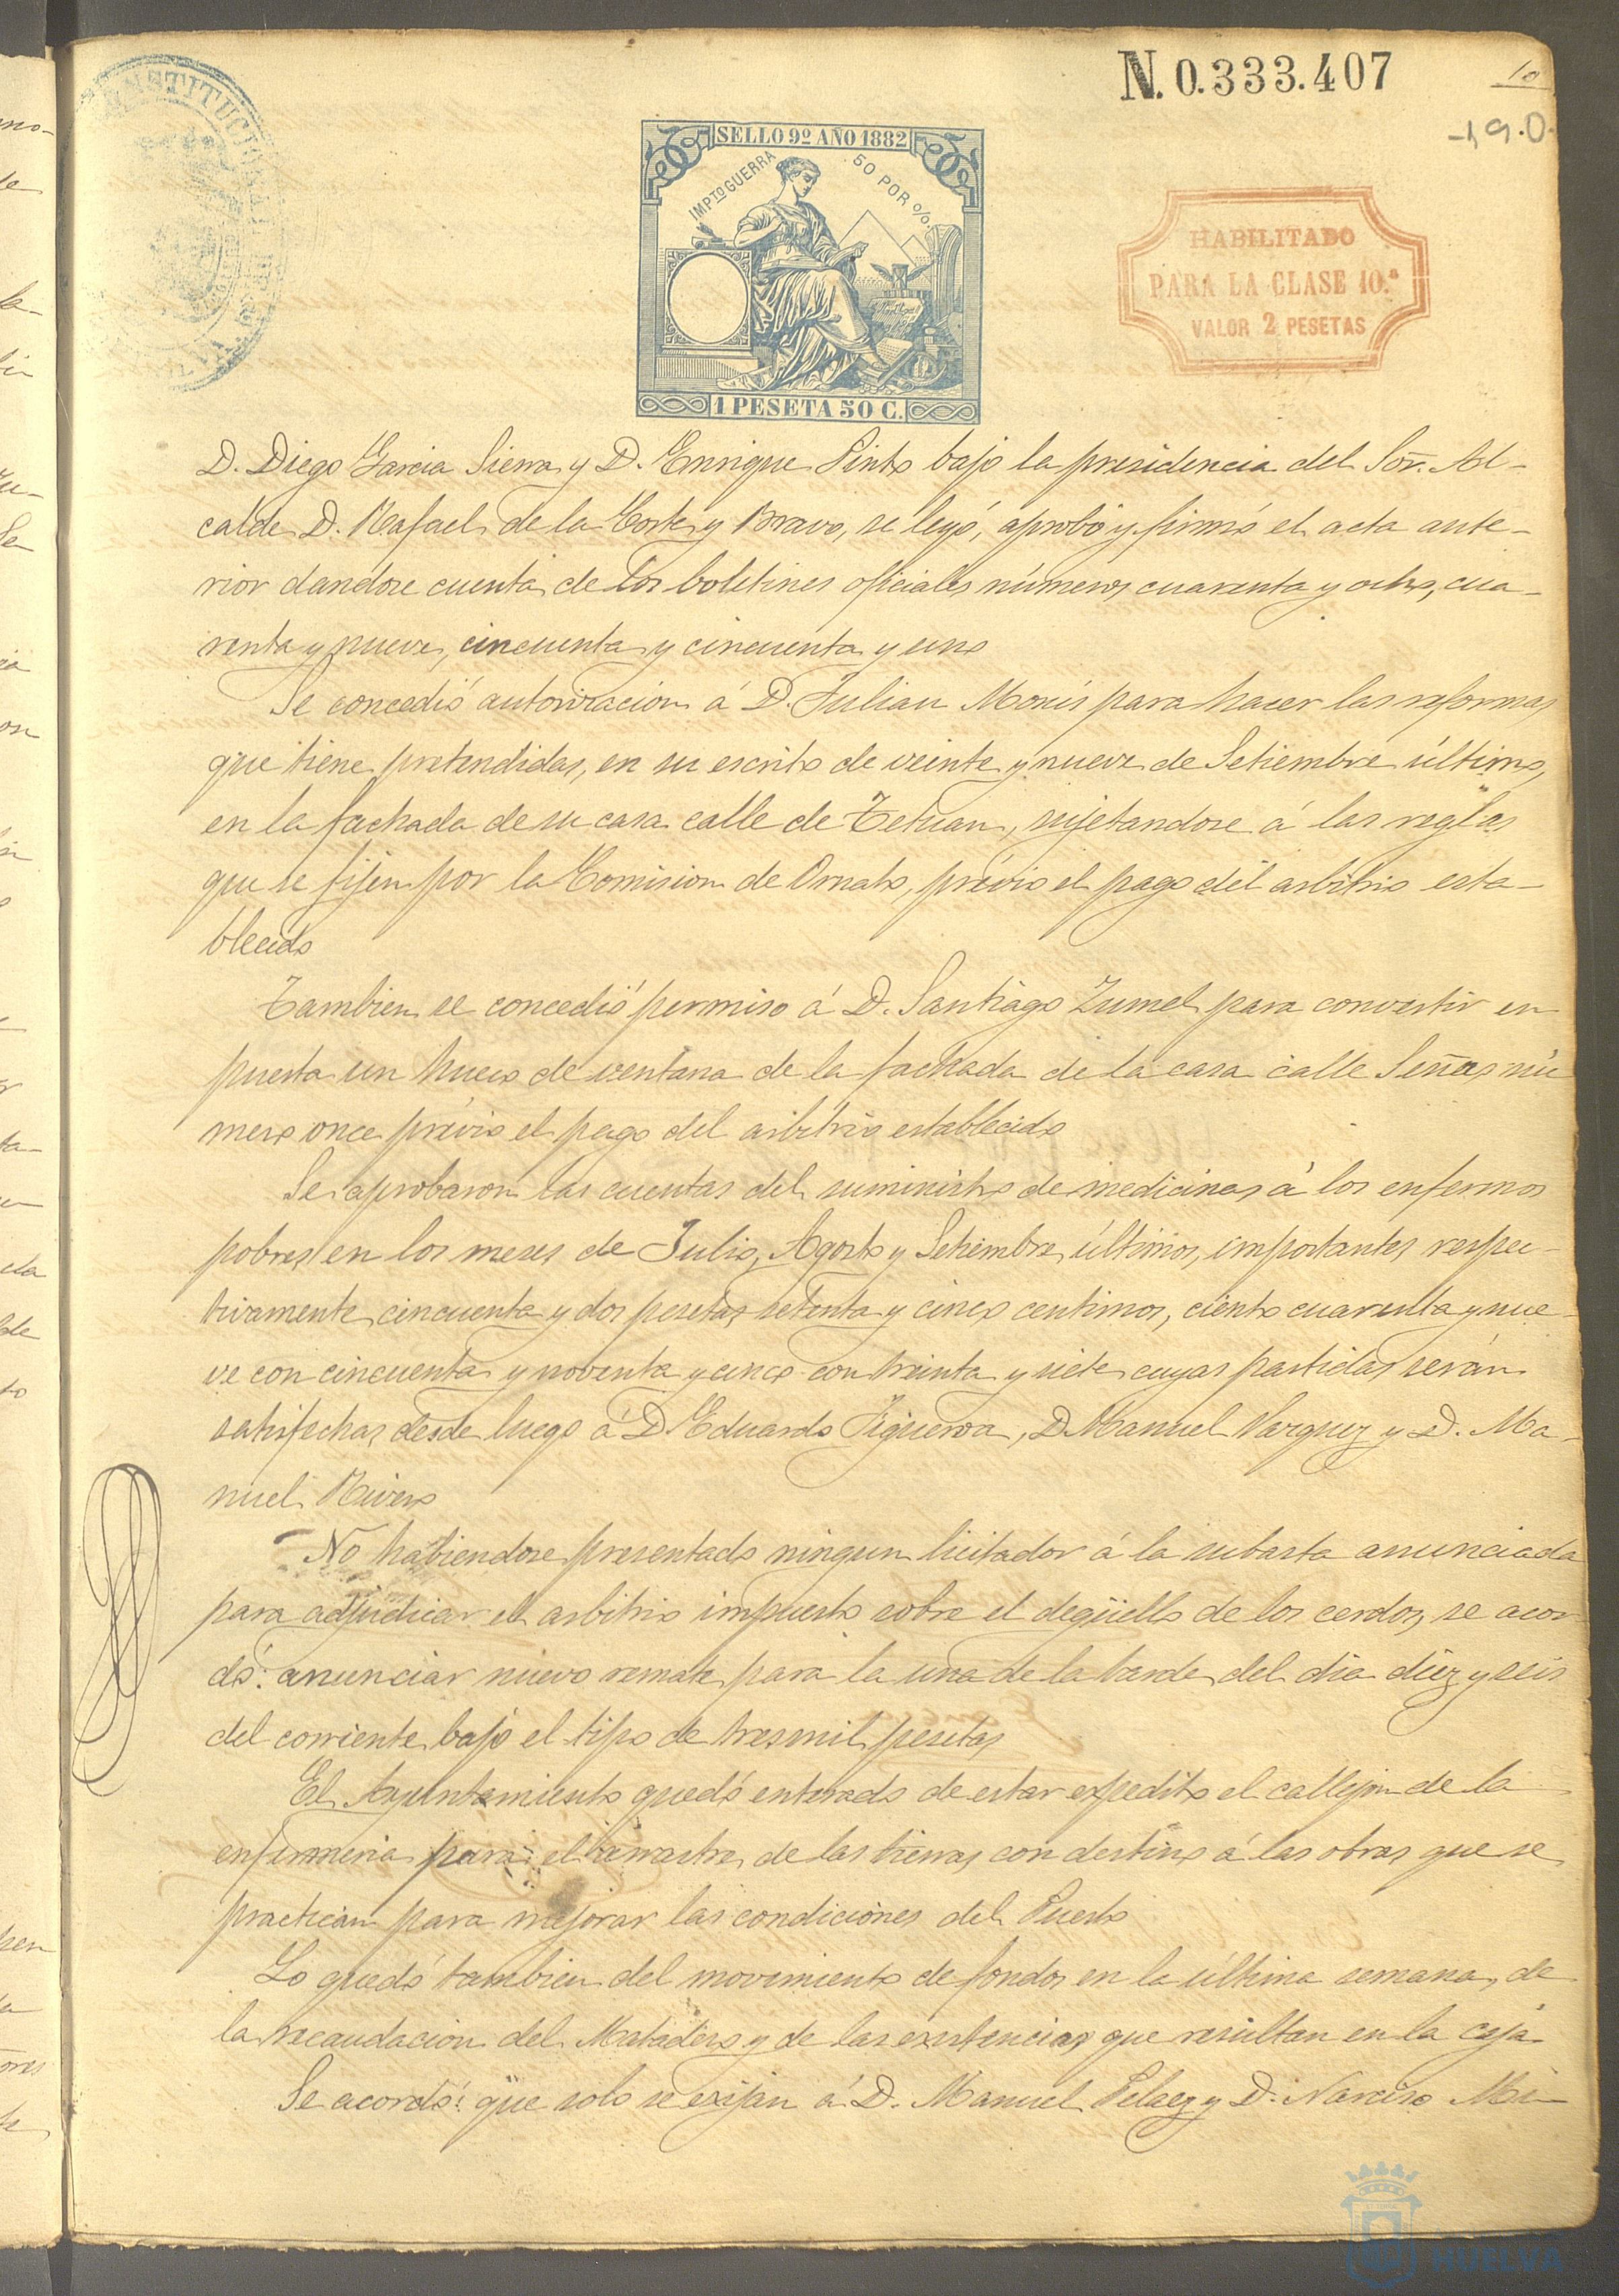 N. 0.333.407
10
-19.0.
SELLO 9º AÑO 1882
IMPTO GUERRA 50 POR %
1 PESETA 50 C.
HABILITADO
PARA LA CLASE 10.ª
VALOR 2 PESETAS
D. Diego Garcia Sierra y D. Enrique Pinto bajo la presidencia del Sor. Al-
calde D. Rafael de la Corte y Bravo, se leyó, aprobó y firmó el acta ante-
rior dandose cuenta de los boletines oficiales números cuarenta y ocho, cua-
renta y nueve, cincuenta y cincuenta y uno
Se concedió autorizacion á D. Julian Monis para hacer las reformas
que tiene pretendidas, en su escrito de veinte y nueve de Setiembre último,
en la fachada de su casa calle de Tetuan, sujetandose á las reglas
que se fijen por la Comision de Ornato, prévio el pago del arbitrio esta-
blecido
Tambien se concedió permiso á D. Santiago Zumel para convertir en
puerta un hueco de ventana de la fachada de la casa calle Señas nú
mero once prévio el pago del arbitrio establecido
Se aprobaron las cuentas del suministro de medicinas á los enfermos
pobres en los meses de Julio, Agosto y Setiembre últimos, importantes respec-
tivamente cincuenta y dos pesetas setenta y cinco centimos, ciento cuarenta y nue-
ve con cincuenta y noventa y cinco con treinta y siete cuyas partidas serán
satisfechas desde luego á D. Eduardo Figueroa, D. Manuel Vazquez y D. Ma-
nuel Rivero
No habiendose presentado ningun licitador á la subasta anunciada
para adjudicar el arbitrio impuesto sobre el degüello de los cerdos, se acor
dó: anunciar nuevo remate para la una de la tarde del dia diez y seis
del corriente bajo el tipo de tresmil pesetas
El Ayuntamiento quedó enterado de estar expedito el callejon de la
enfermeria para el arrastre de las tierras con destino á las obras que se
practican para mejorar las condiciones del Puerto
Lo quedó tambien del movimiento de fondos en la última semana, de
la recaudacion del Matadero y de las existencias que resultan en la caja
Se acordó: que solo se exijan á D. Manuel Pelaez y D. Narciso Mi-
HUELVA